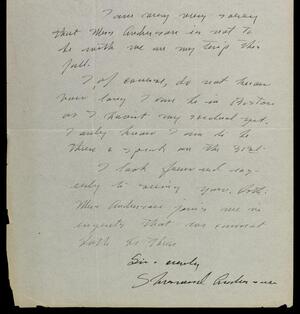 I am very very sorry
that Mrs Anderson is not to
be with me on my trip this
fall.
I, of course, do not know
how long I am to be in Boston
as I haven't my schedule yet.
I only know I am to be
there & speak on the 31st.
I look forward
to seeing you. Both.
Mrs Anderson joins me in
regrets that we cannot
both be there
Sincerely
Sherwood Anderson